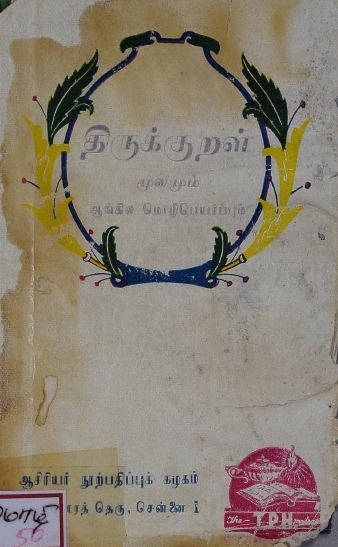 திருக்குறள்
மூலமும்
ஆங்கில மொழிபெயர்ப்பும்
ஆசிரியர் நூற்பதிப்புக் கழகம்
தெரு, சென்னை 1
The T.P.H
மொழி
56